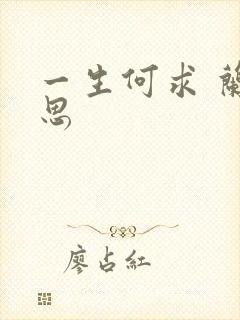 一生何求 蘭
思
廖占紅